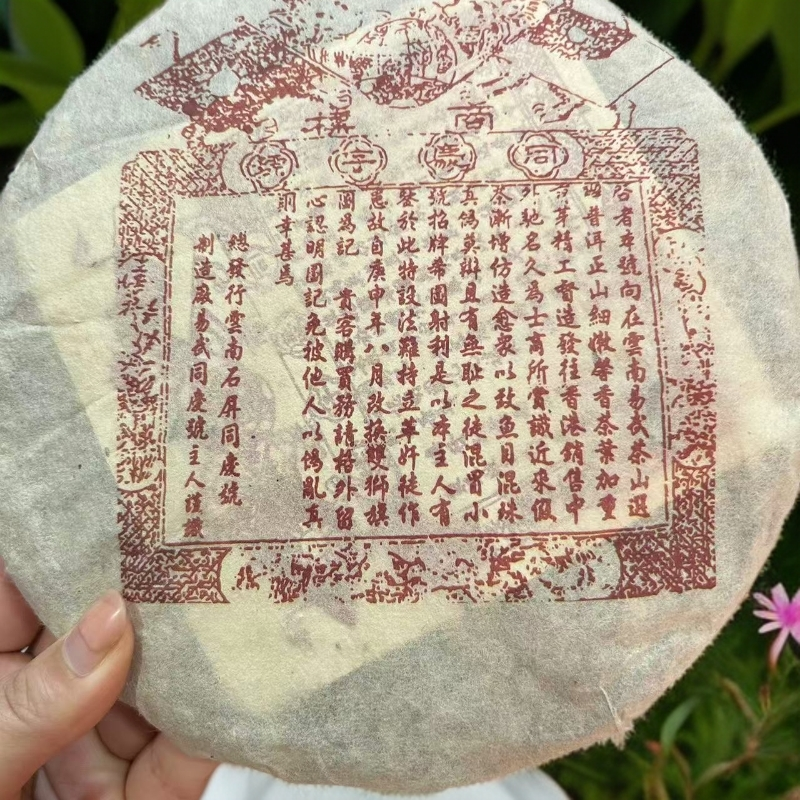 商標
同慶字號
者本號向在雲南易武茶山選
普洱正山細嫩榮香茶葉加重
芽精工督造發往香港銷售中
外馳名久為士商所賞識近來假
茶漸增仿造愈眾以致魚目混珠
真偽莫辦且有無恥之徒混冒小
號招牌希圖射利是以本主人有
鑒於此特設法難持立革奸徒作
故自庚申年八月改換雙獅旗
圖為記 貴客購買務請格外留
心認明圖記免被他人以偽亂真
則幸甚焉
總發行雲南石屏同慶號
制造廠易武同慶號主人謹識